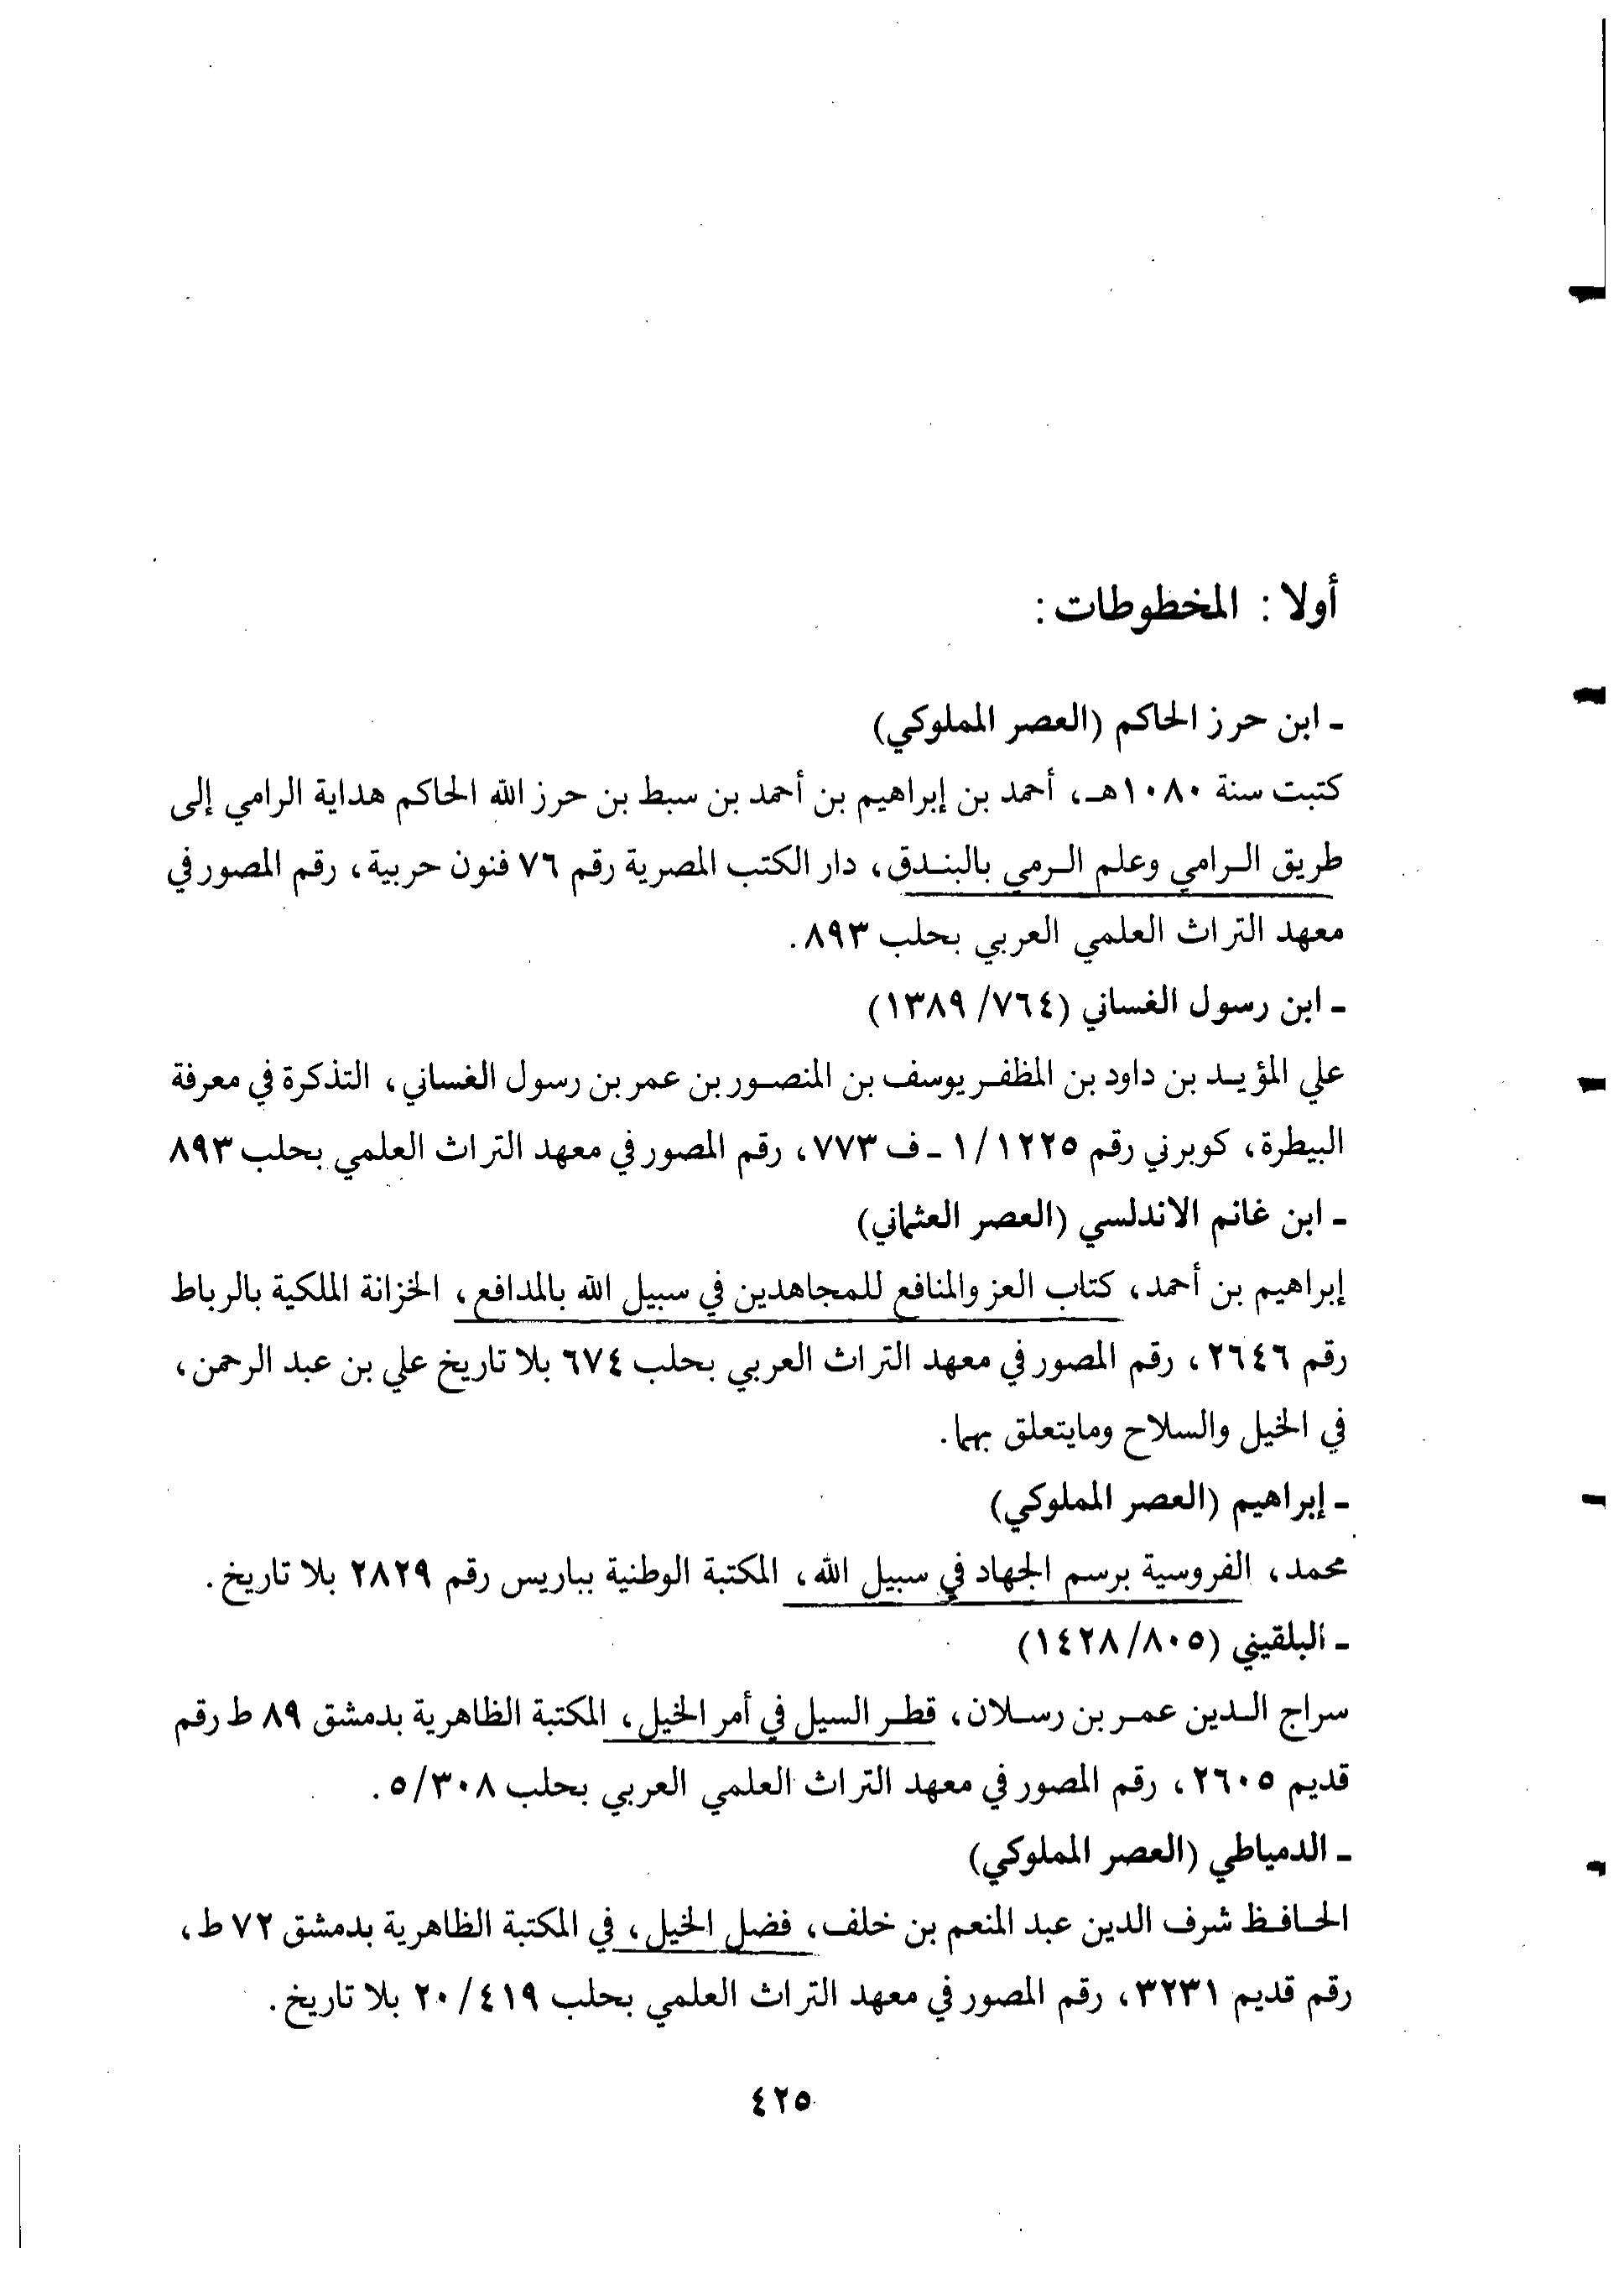 أولا : المخطوطات :
ـ ابن حرز الحاكم (العصر المملوكي)
كتبت سنة ١٠٨٠هـ، أحمد بن إبراهيم بن أحمد بن سبط بن حرز الله الحاكم هداية الرامي إلى
طريق الرامي وعلم الرمي بالبندق، دار الكتب المصرية رقم ٧٦ فنون حربية، رقم المصور في
معهد التراث العلمي العربي بحلب ٨٩٣.
ـ ابن رسول الغساني (٧٦٤/ ١٣٨٩)
علي المؤيد بن داود بن المظفر يوسف بن المنصور بن عمر بن رسول الغساني، التذكرة في معرفة
البيطرة، كوبرني رقم ١/١٢٢٥ ـ ف ٧٧٣، رقم المصور في معهد التراث العلمي بحلب ٨٩٣
ـ ابن غانم الاندلسي (العصر العثماني)
إبراهيم بن أحمد، كتاب العز والمنافع للمجاهدين في سبيل الله بالمدافع، الخزانة الملكية بالرباط
رقم ٢٦٤٦، رقم المصور في معهد التراث العربي بحلب ٦٧٤ بلا تاريخ علي بن عبد الرحمن،
في الخيل والسلاح ومايتعلق بهما.
ـ إبراهيم (العصر المملوكي)
محمد، الفروسية برسم الجهاد في سبيل الله، المكتبة الوطنية بباريس رقم ٢٨٢٩ بلا تاريخ.
ـ البلقيني (١٤٢٨/٨٠٥)
سراج الدين عمر بن رسلان، قطر السيل في أمر الخيل، المكتبة الظاهرية بدمشق ٨٩ ط رقم
قديم ٢٦٠٥، رقم المصور في معهد التراث العلمي العربي بحلب ٥/٣٠٨.
ـ الدمياطي (العصر المملوكي)
الحافظ شرف الدين عبد المنعم بن خلف، فضل الخيل، في المكتبة الظاهرية بدمشق ٧٢ ط،
رقم قديم ٣٢٣١، رقم المصور في معهد التراث العلمي بحلب ٢٠/٤١٩ بلا تاريخ.
٤٢٥